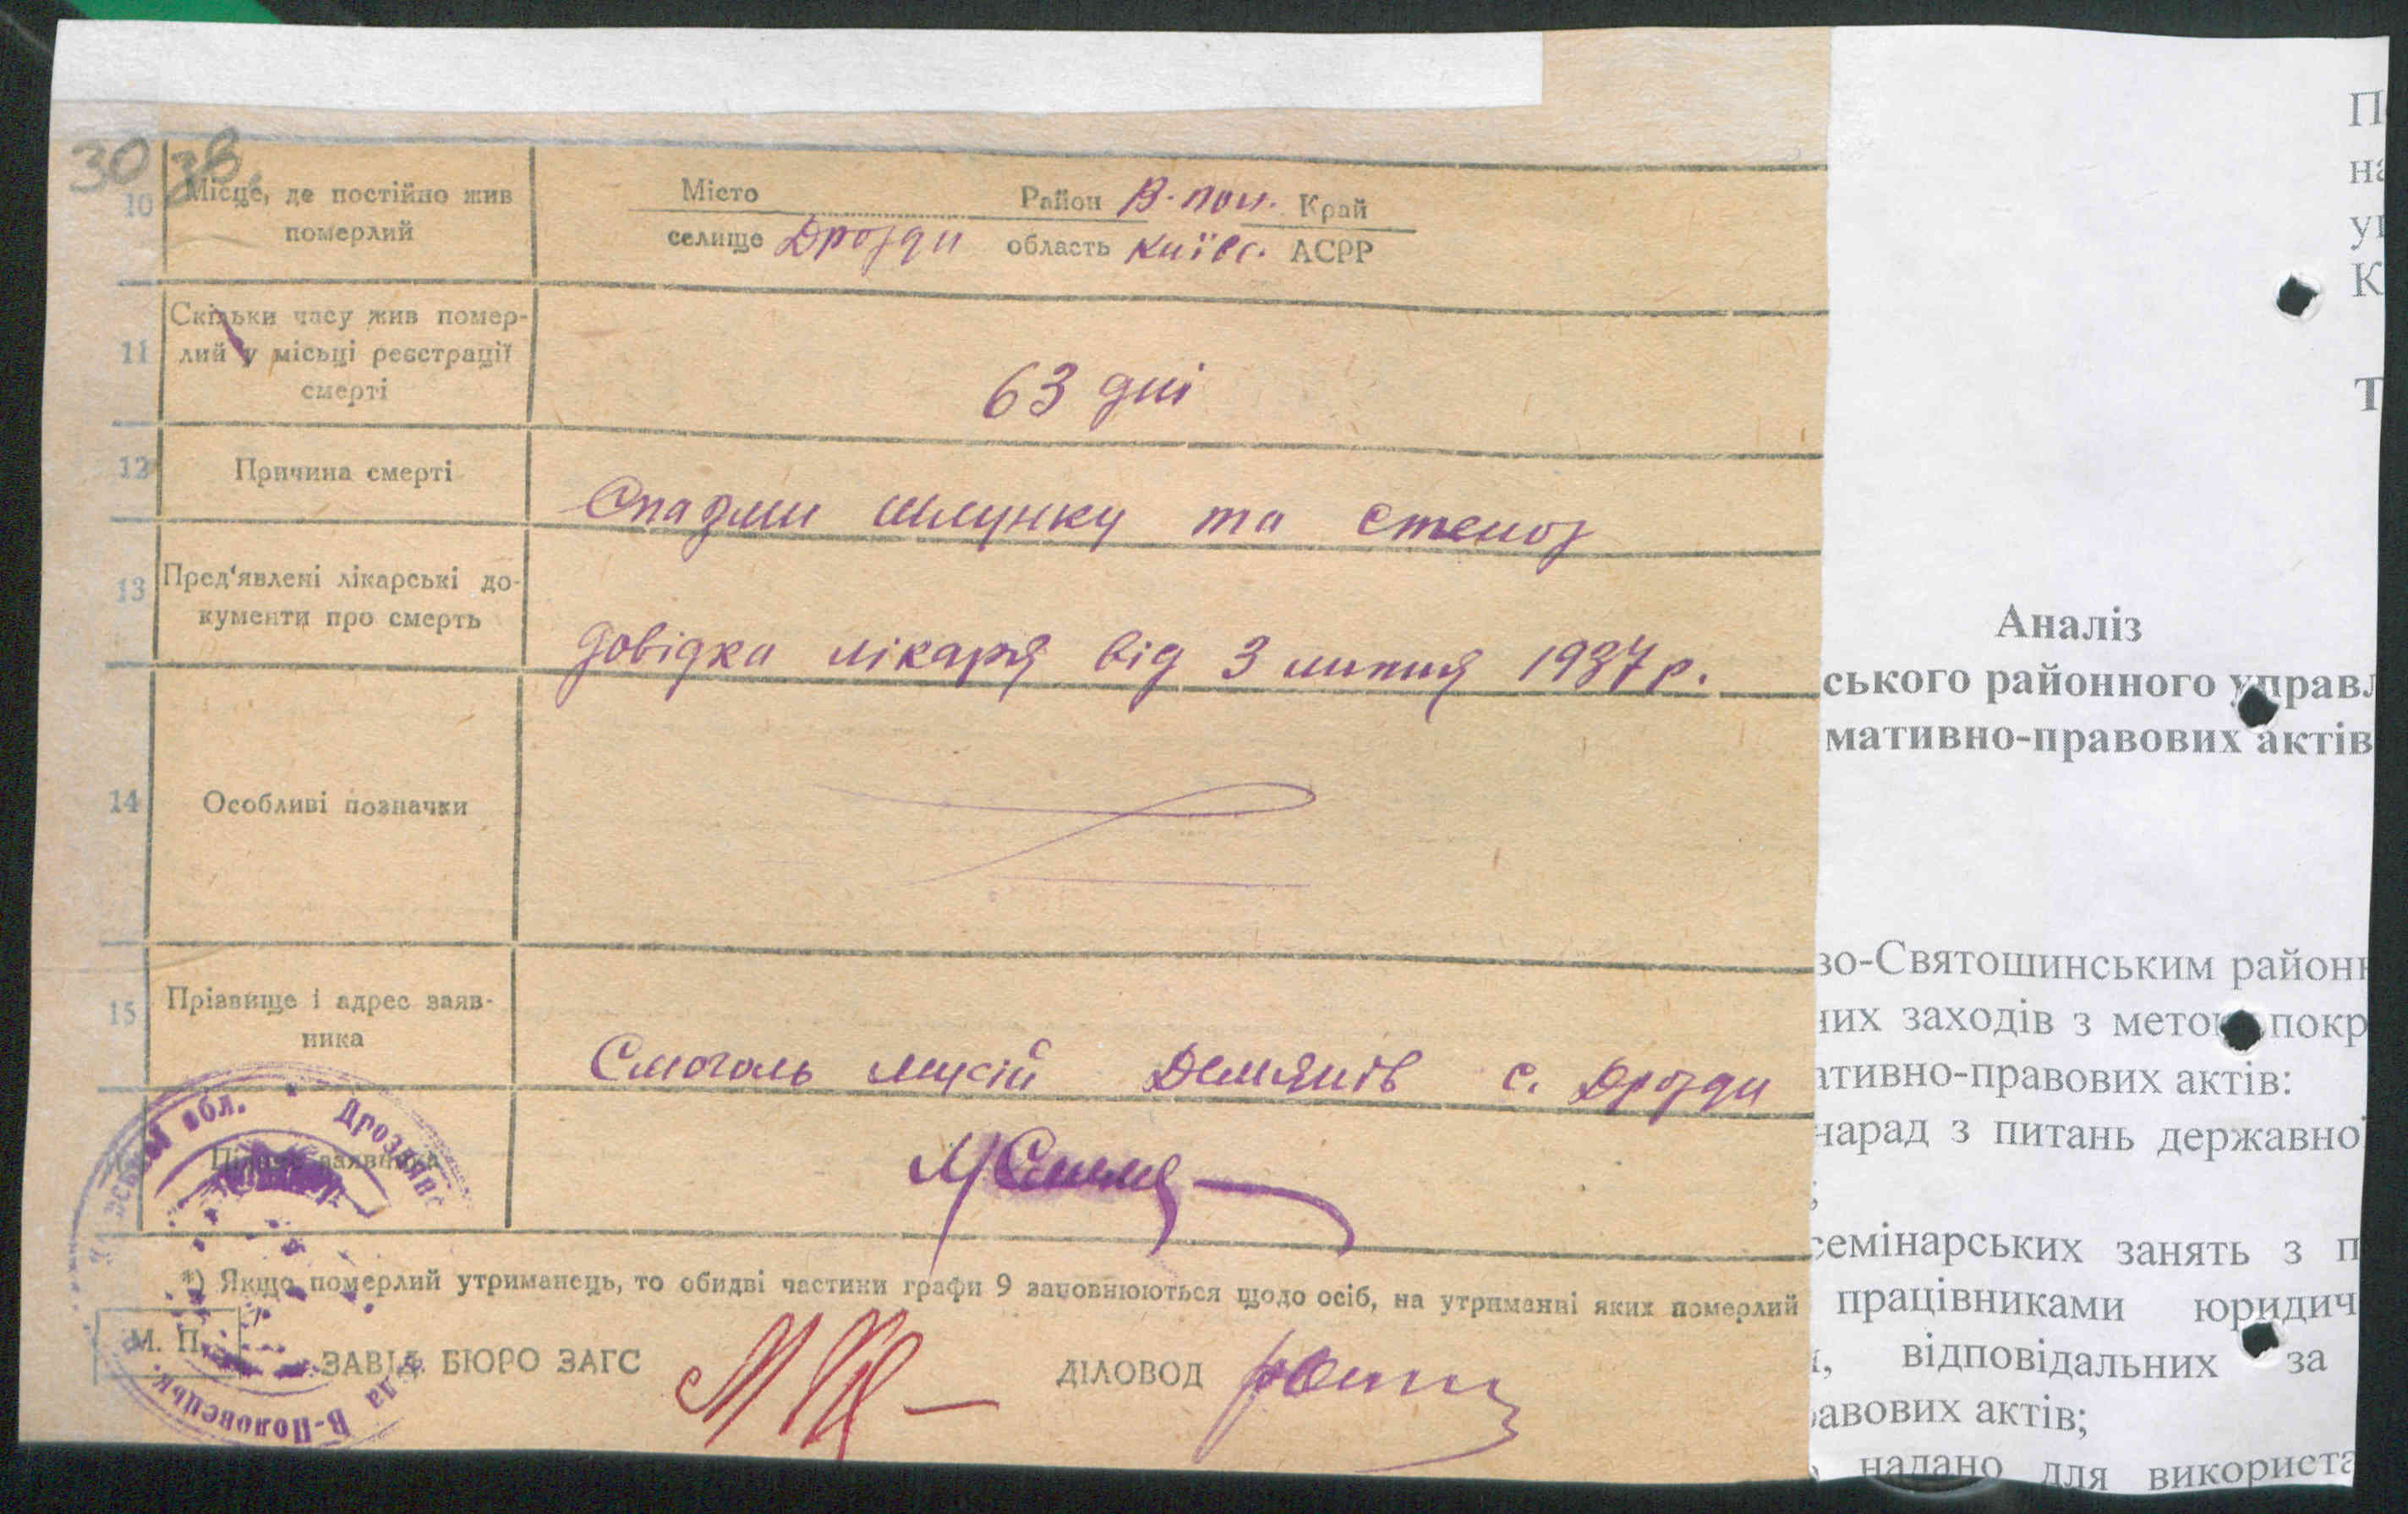 30 38.
10 Місце, де постійно жив
померлий
Місто Район В-пол. Край
селище Дрозди область Київс. АСРР
11 Скільки часу жив помер-
лий у місці реєстрації
смерті
63 дні
12 Причина смерті
Спазми шлунку та стеноз
13 Пред'явлені лікарські до-
кументи про смерть
Довідка лікаря від 3 липня 1937 р.
14 Особливі позначки
15 Прізвище і адрес заяв-
ника
Смоголь Мусій Демянів с. Дрозди
Підпис заявника
*) Якщо померлий утриманець, то обидві частини графи 9 заповнюються щодо осіб, на утриманні яких померлий
М. П.
ЗАВІД. БЮРО ЗАГС
ДІЛОВОД
обл. • Дроздянс
В-Половецьк.
П
на
уп
К
Т
Аналіз
ського районного управл
мативно-правових актів
во-Святошинським районн
них заходів з метою покр
ативно-правових актів:
нарад з питань державно
;
семінарських занять з п
працівниками юридич
відповідальних за
авових актів;
надано для використа